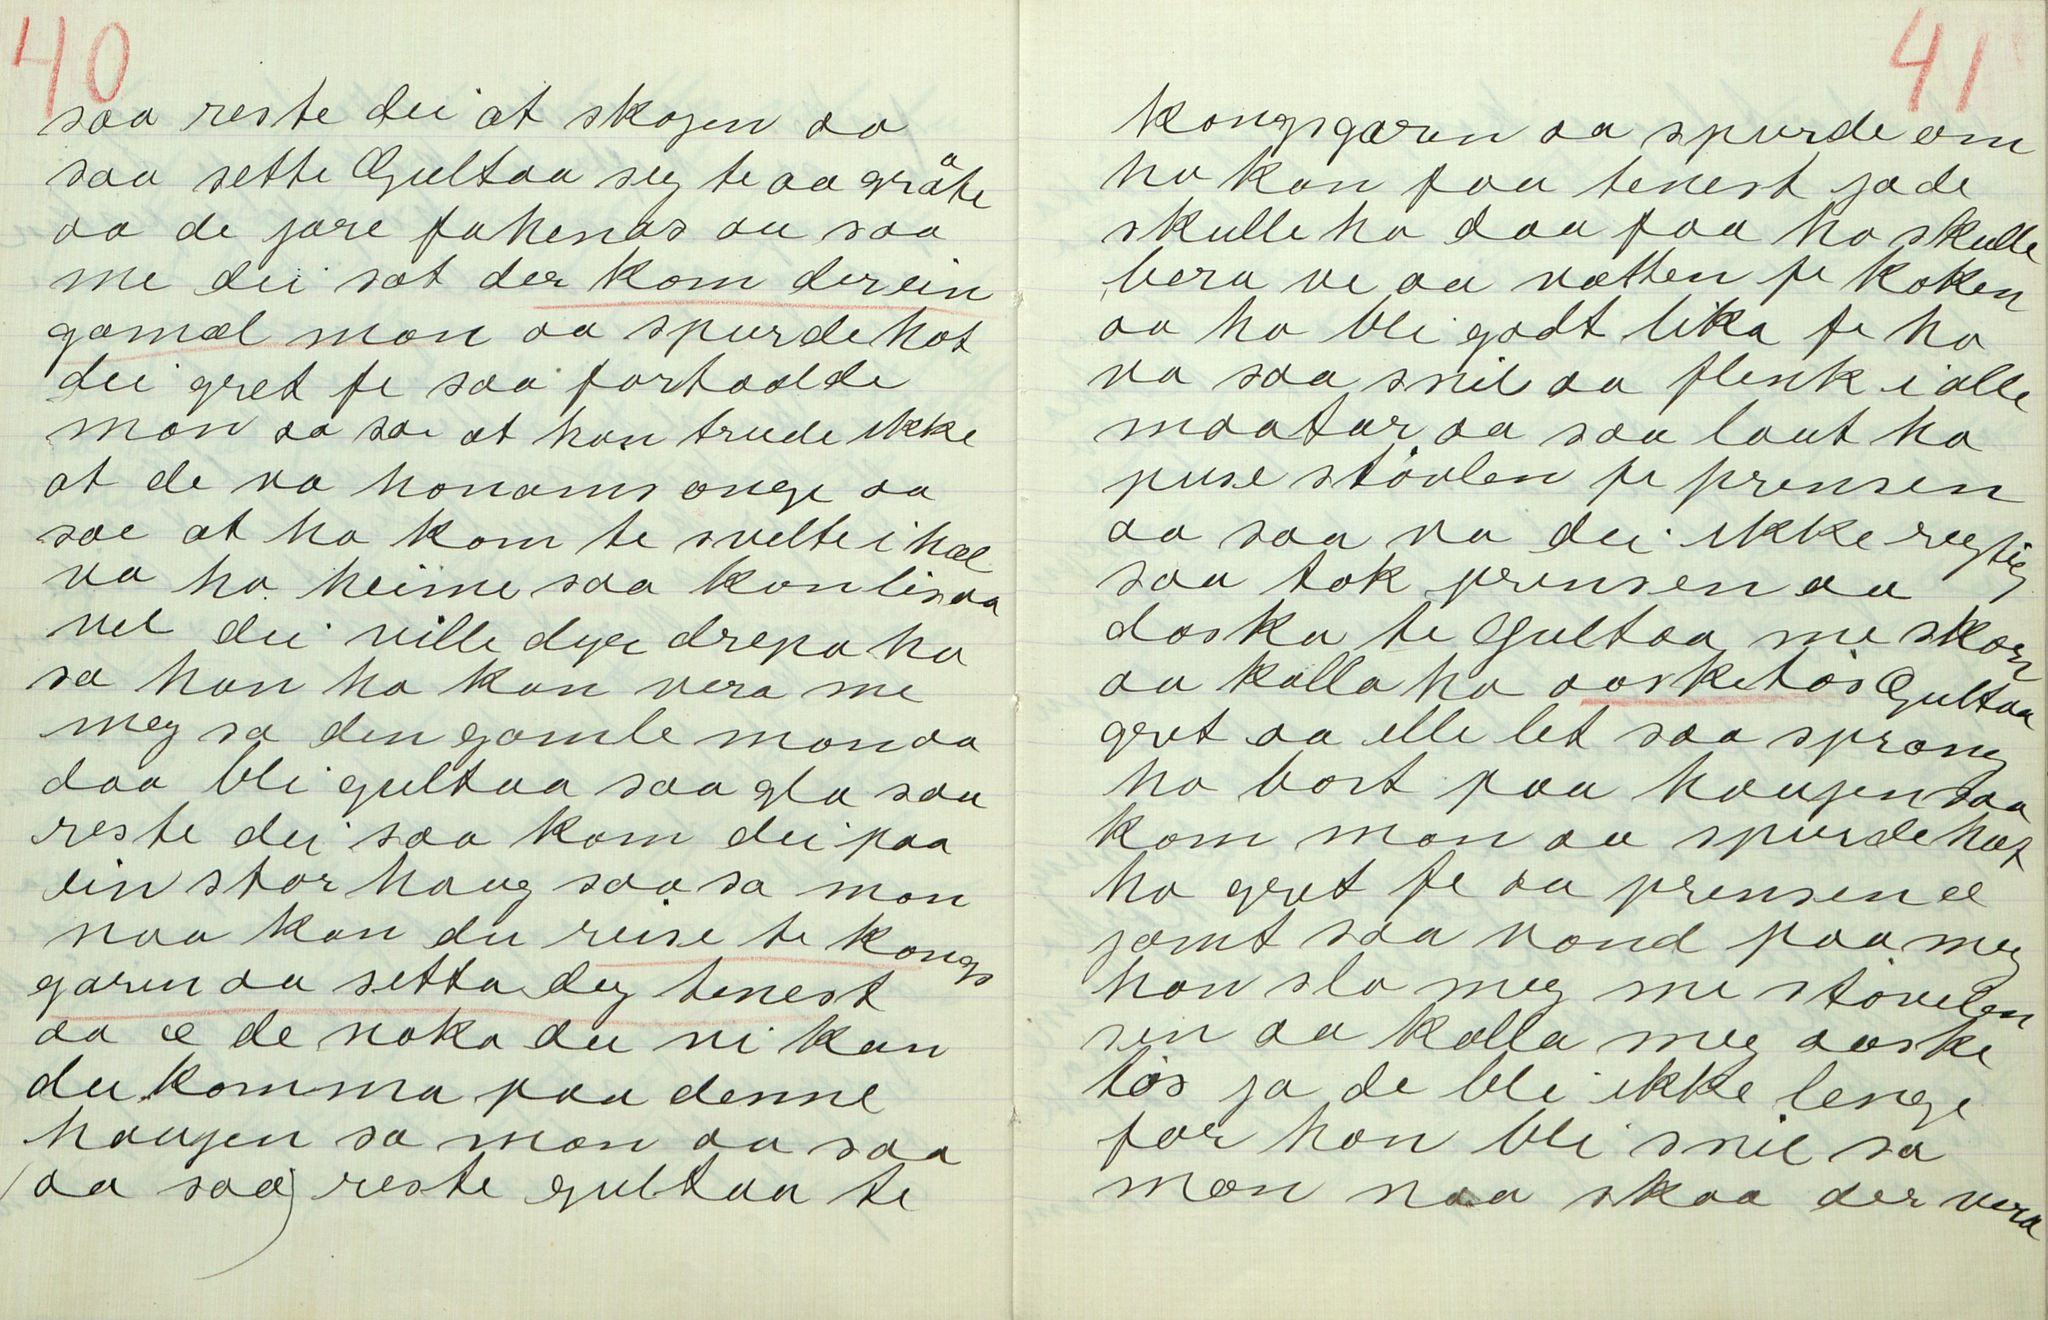 40
saa reste dei at skogen aa
saa sette Gultaa seg te aa gräte
aa de jore fahenas aa saa
me dei sat der kom der ein
gamal man aa spurde hot
dei gret fe saa fortaalde
man aa sae at han trude ikke
at de va honams onge aa
sae at ho kom te svelte i hæl
va ho heime saa kan lisaa
vel dei ville dyē drepa ho
sa han ho kan vera me
meg sa den gamle man aa
daa bli gultaa saa gla saa
reste dei saa kom dei paa
ein stor haug saa sa man
naa kan du reise te kongs
garen aa setta deg tenest
aa æ de noka du vi kan
du komma paa denne
haugen sa man aa saa
(aa saa) reste gultaa te
41
kongsgaren aa spurde om
ho kan faa tenest ja de
skulle ho daa faa ho skulle
bera ve aa vatten fe koken
aa ho bli godt lika fe ho
va saa snil aa flink i alle
maatar aa saa laut ho
puse stövlen fe prensen
aa saa va dei ikke regtig
saa tok prensen aa
daska te Gultaa me skorn
aa kalla ho aasketös Gultaa
gret aa ille let saa sprang
ho bort paa haugen saa
kom man aa spurde hot
ho gret fe aa prensen æ
jamt saa vond paa meg
han sla meg me stövelen
sin aa kalla meg aaske
tös ja de bli ikke lenge
før han bli snil sa
man naa skaa der vera